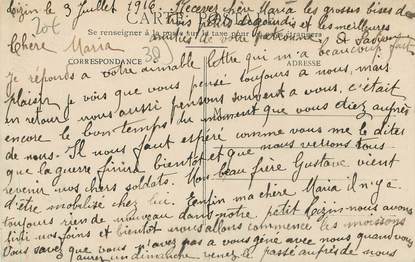 Loizin le 3 Juillet 1916. Recevez chère Maria les grosses bises de
CARTE POSTALE
et les meilleures
Se renseigner à la poste sur la taxe pour l'étranger
Chère Maria
CORRESPONDANCE
ADRESSE
20f
30
Je réponds a votre aimable lettre qui m'a beaucoup fait
plaisir je vois que vous pensé toujours a nous, mais
en retour nous aussi pensons souvent a vous, c'était
encore le bon temps du moment que vous diez auprès
de nous. Il nous faut espéré comme vous me le dites
que la guerre finira bientot et que nous verrons tous
revenir nos chers soldats. Mon beau frère Gustave vient
d'être mobilisé chez lui. Enfin ma chère Maria il n'y a
toujours rien de nouveau dans notre petit Loizin nous avons
finit nos foins et bientot nous allons commencé les moissons
Vous savez que vous n'avez pas a vous gêné avec nous quand vous
aurez un dimanche venez le passé auprès de nous